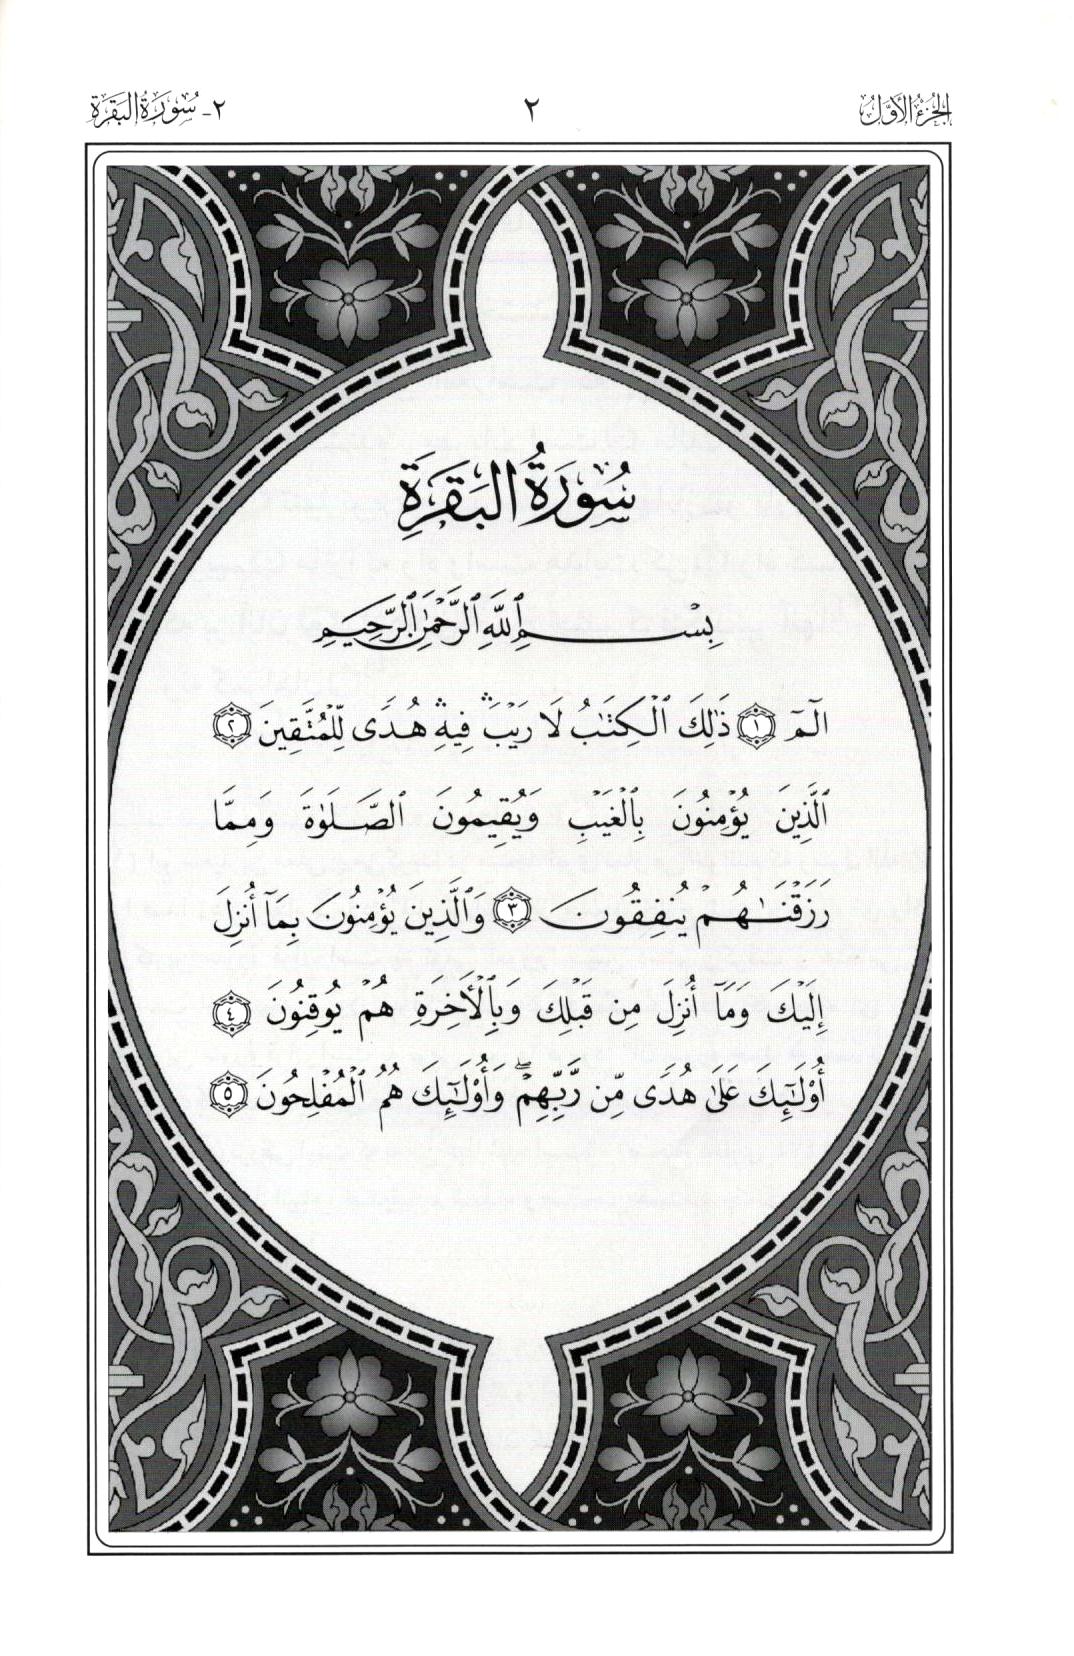 الجزء الأول
٢
٢- سورة البقرة
سُورَةُ البَقَرَةِ
بِسْمِ ٱللَّهِ ٱلرَّحْمَٰنِ ٱلرَّحِيمِ
الٓمٓ ١ ذَٰلِكَ ٱلْكِتَٰبُ لَا رَيْبَ ۛ فِيهِ ۛ هُدًى لِّلْمُتَّقِينَ ٢
ٱلَّذِينَ يُؤْمِنُونَ بِٱلْغَيْبِ وَيُقِيمُونَ ٱلصَّلَوٰةَ وَمِمَّا
رَزَقْنَٰهُمْ يُنفِقُونَ ٣ وَٱلَّذِينَ يُؤْمِنُونَ بِمَآ أُنزِلَ
إِلَيْكَ وَمَآ أُنزِلَ مِن قَبْلِكَ وَبِٱلْأَخِرَةِ هُمْ يُوقِنُونَ ٤
أُو۟لَٰٓئِكَ عَلَىٰ هُدًى مِّن رَّبِّهِمْ ۖ وَأُو۟لَٰٓئِكَ هُمُ ٱلْمُفْلِحُونَ ٥